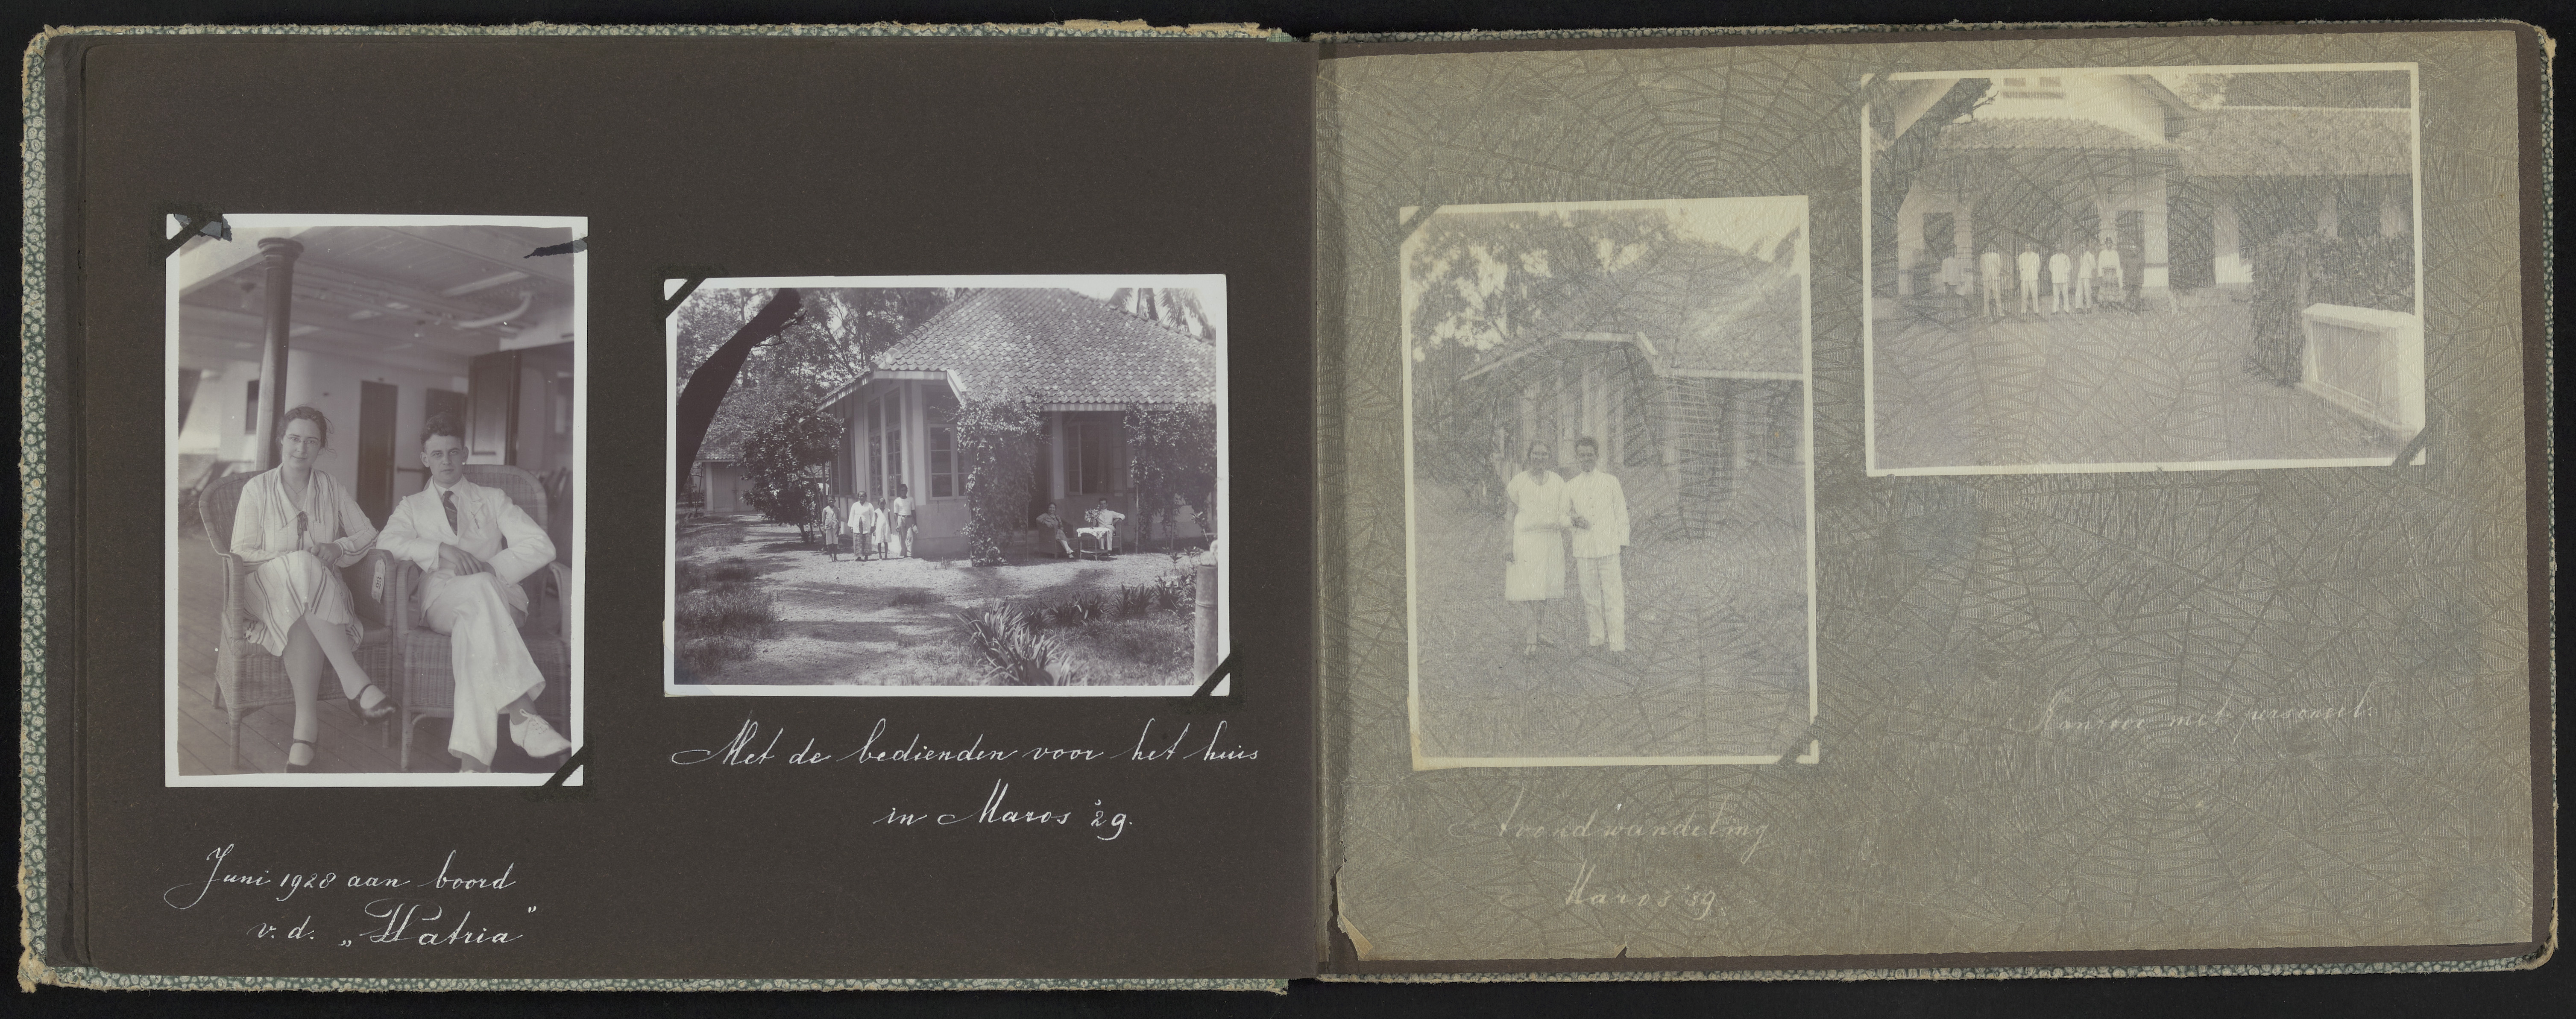 Juni 1928 aan boord
v. d. „Patria"
Met de bedienden voor het huis
in Maros '29.
Avondwandeling
Maros '29
Kantoor met personeel.